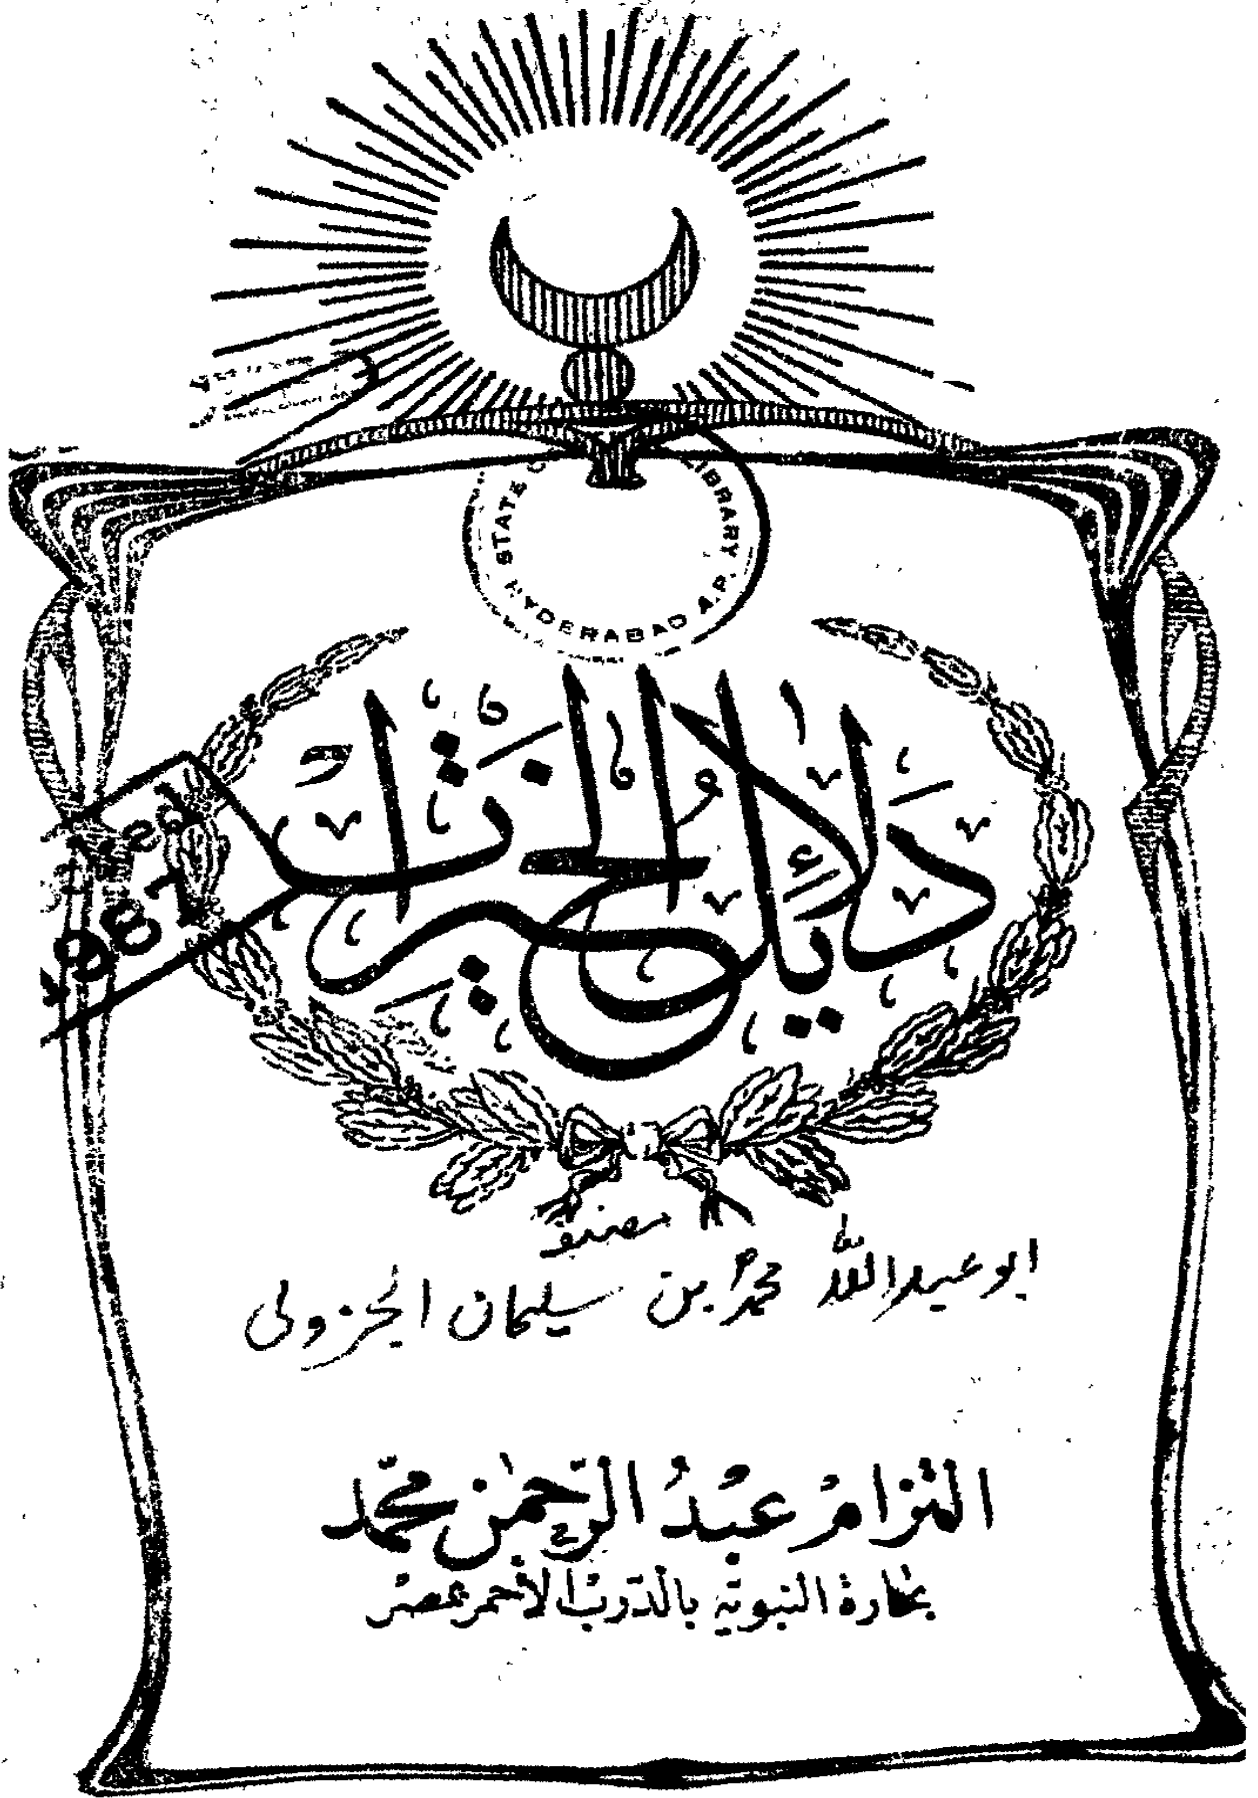 STATE LIBRARY
HYDERABAD A.P.
دَلَائِلُ الخَيْرَاتِ
1987
مصنفہ
ابو عبداللہ محمد بن سلیمان الجزولی
التزام عبد الرحمن محمد
بحارة النبوية بالدرب الأحمر بمصر